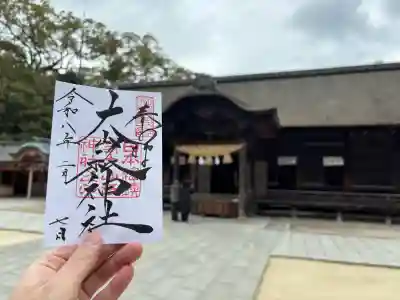 奉拝
大山祇神社
令和八年二月
七日
日本